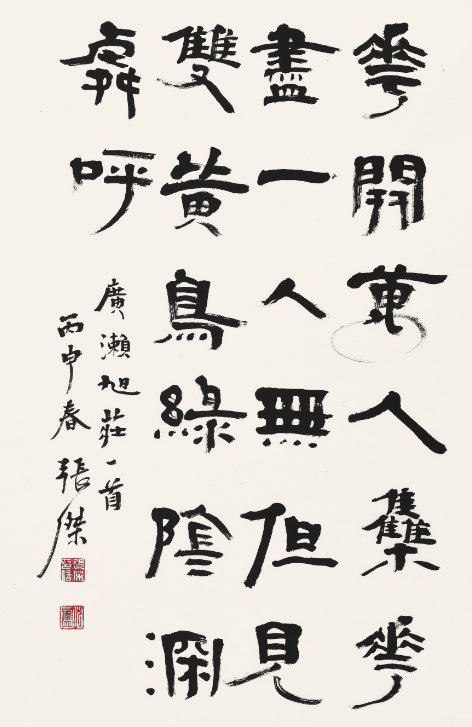 華開萬人集華
盡一人無但見
雙黃鳥綠陰深
處呼
廣瀨旭莊一首
丙申春張傑